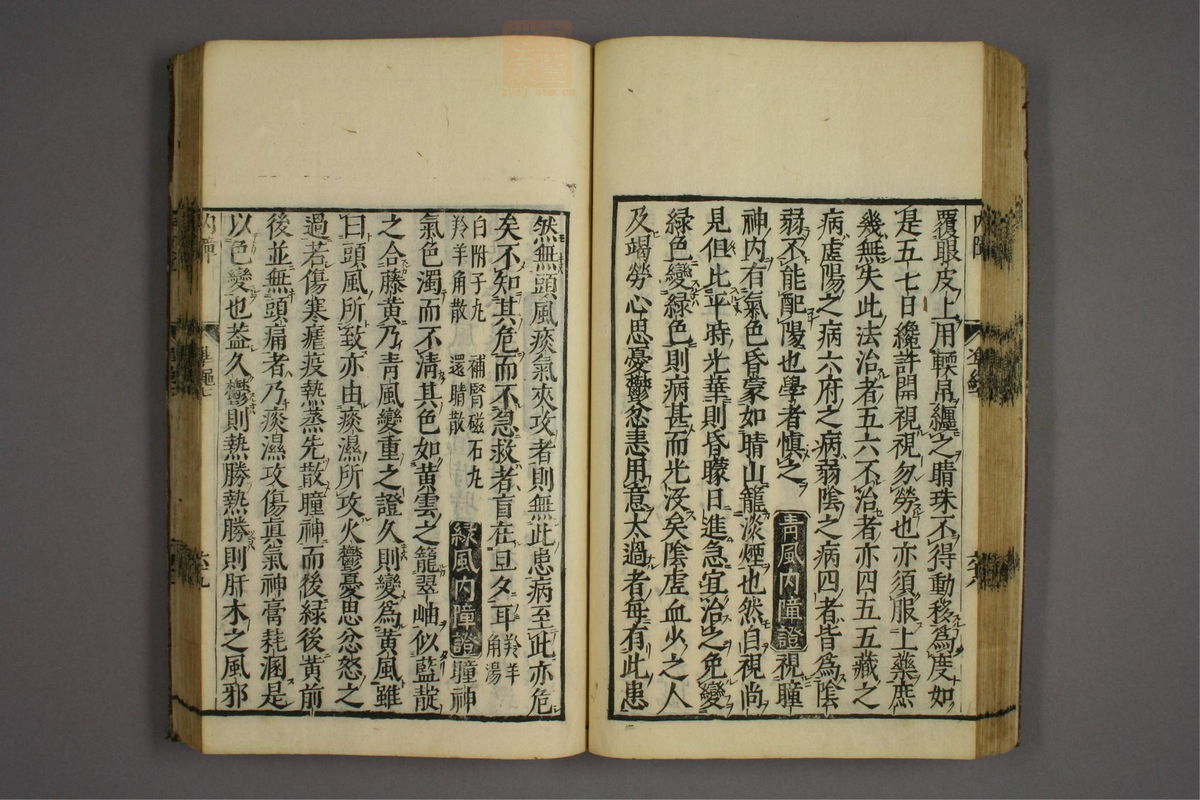 覆眼皮上用輭帛纏之睛珠不得動移爲度如
是五七日纔許開視視勿勞也亦須服上藥庶
幾無失此法治者五六不治者亦四五五藏之
病虛陽之病六府之病弱陰之病四者皆爲陰
弱不能配陽也學者愼之 青風内障證 視瞳
神内有氣色昏蒙如晴山籠淡煙也然自視尚
見但比平時光華則昏矇日進急宜治之免變
綠色變綠色則病甚而光沒矣陰虛血少之人
及竭勞心思憂鬱忿恚用意太過者每有此患
然無頭風痰氣夾攻者則無此患病至此亦危
矣不知其危而不急救者盲在旦夕耳 羚羊角湯
白附子丸 補腎磁石丸
羚羊角散 還睛散
綠風内障證 瞳神
氣色濁而不清其色如黃雲之籠翠岫似藍靛
之合藤黃乃青風變重之證久則變爲黃風雖
曰頭風所致亦由痰濕所攻火鬱憂思忿怒之
過若傷寒瘧疫熱蒸先散瞳神而後綠後黃前
後並無頭痛者乃痰濕攻傷眞氣神膏耗涸是
以色變也蓋久鬱則熱勝熱勝則肝木之風邪
内障